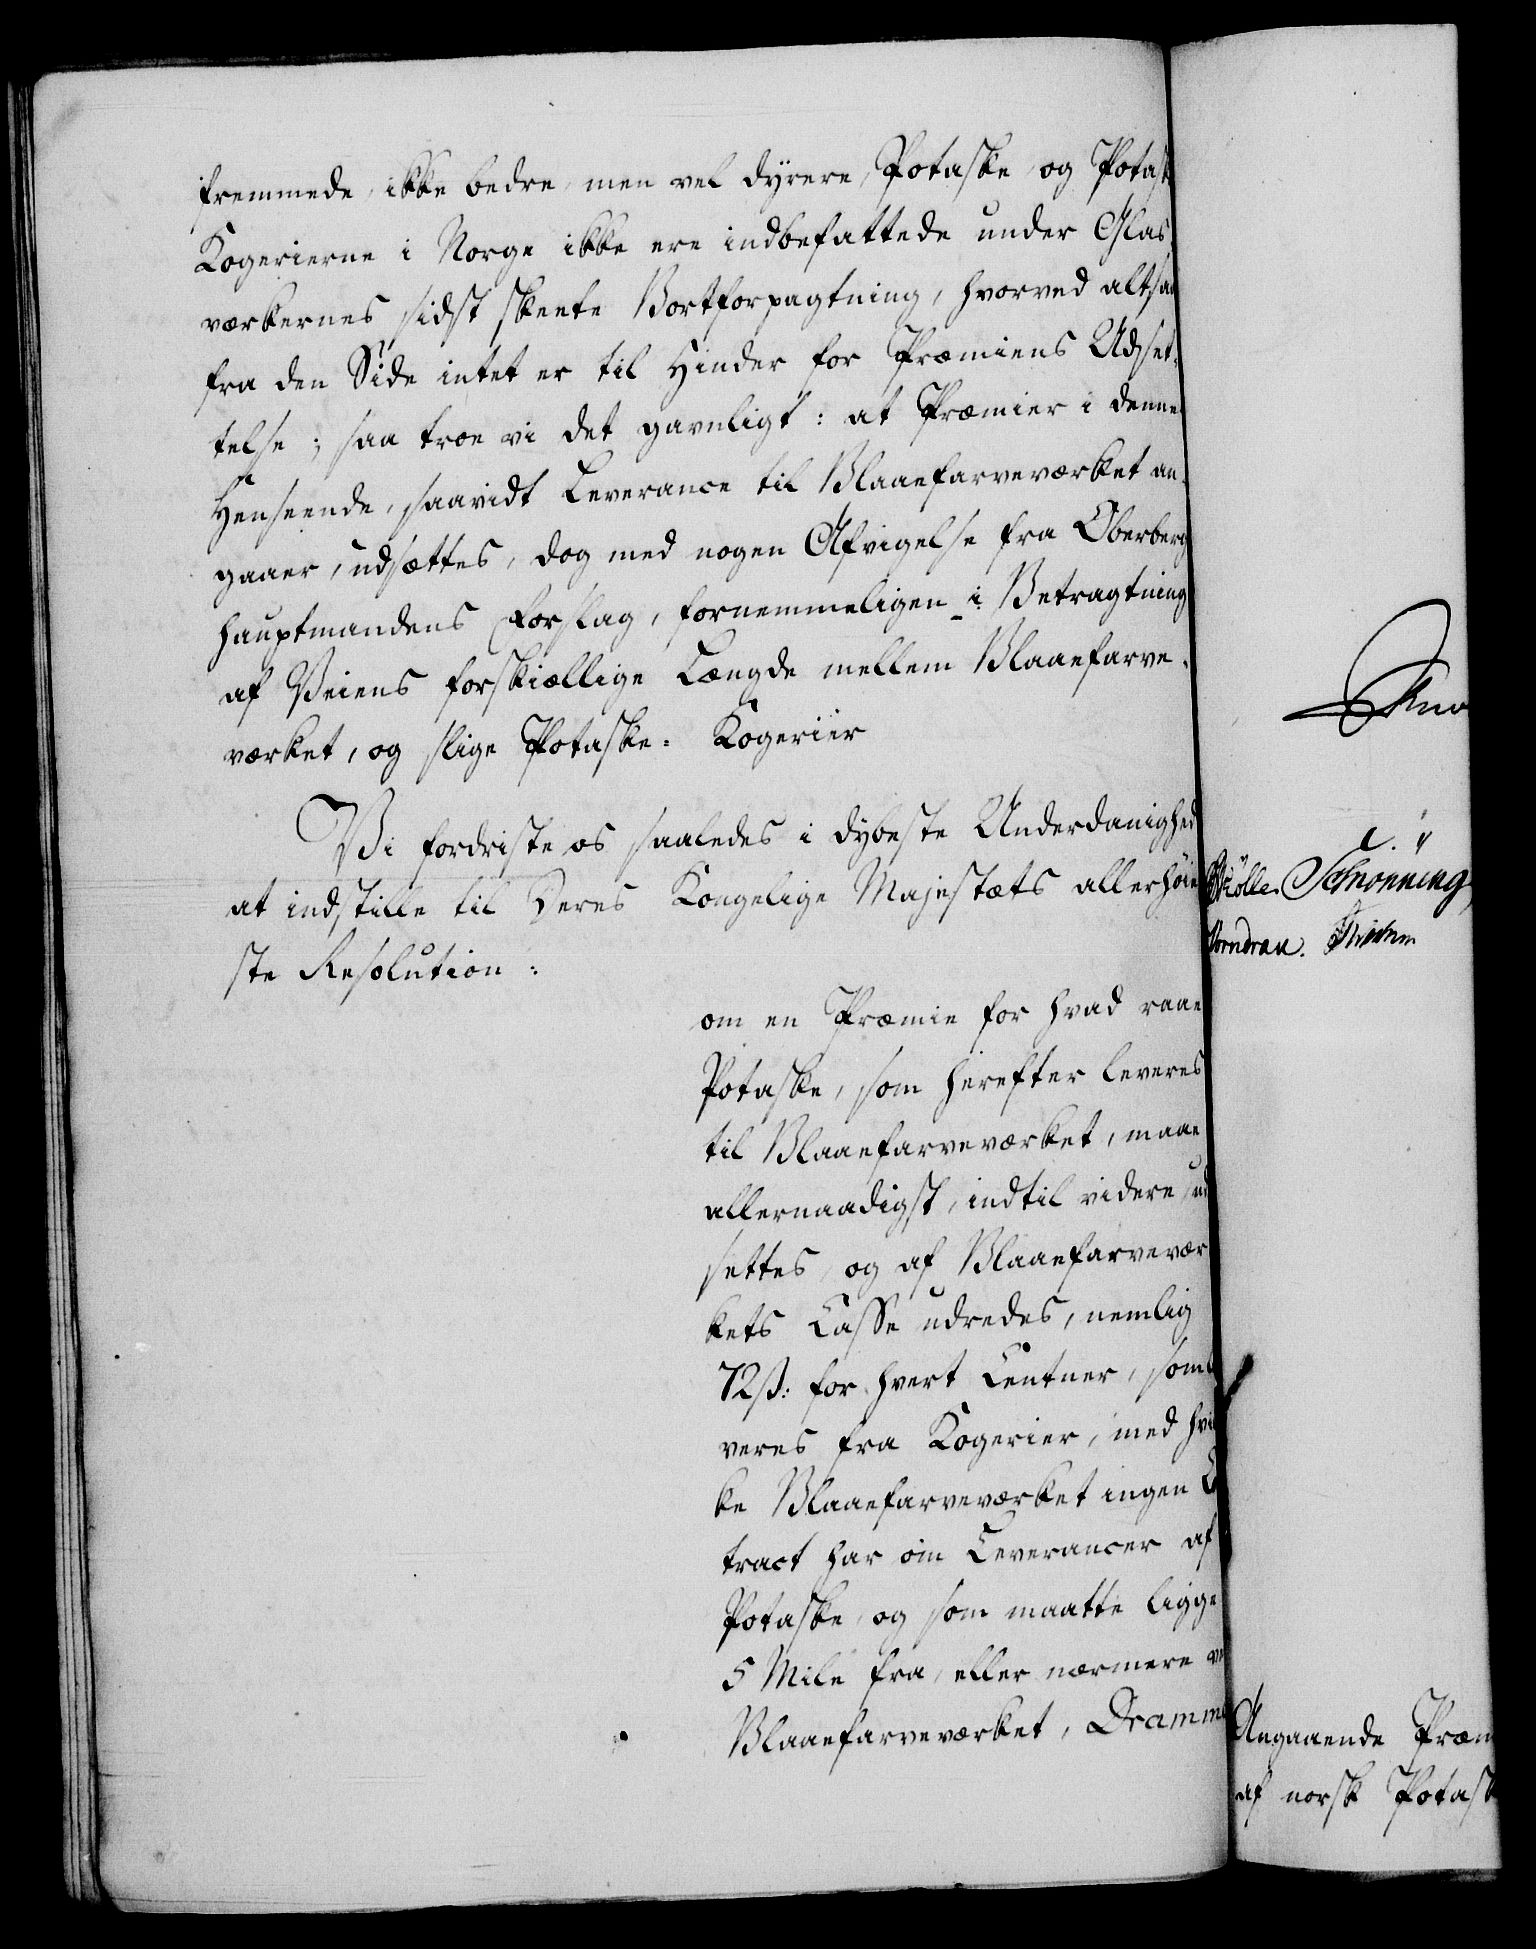 fremmede, ikke bedre, men vel dyrere, Potaske, og Potask
Kogerierne i Norge ikke ere indbefattede under Glas
værkernes sidst skeete Bortforpagtning, hvorved altsaa
fra den Side intet er til Hinder for Præmiens Udset-
telse; saa troe vi det gavnligt: at Præmier i denne
Henseende, saavidt Leverance til Blaaefarveværket an-
gaaer, udsættes, dog med nogen Afvigelse fra Oberberg
hauptmandens Forslag, fornemmeligen i Betragtning
af Veiens forskiællige Længde mellem Blaaefarve-
værket, og slige Potaske-Kogerier
Vi fordriste os saaledes i dybeste Underdanighed
at indstille til Deres Kongelige Majestæts allerhøie
ste Resolution:
om en Præmie for hvad raae
Potaske, som herefter leveres
til Blaaefarveværket, maae
allernaadigst, indtil videre, ud
settes, og af Blaaefarvevær
kets Casse udredes, nemlig
72 ß: for hvert Centner, som
veres fra Kogerier, med hvi
ke Blaaefarveværket ingen
tract har om Leverancer af
Potaske, og som maatte ligge
5 Mile fra, eller nærmere
Blaaefarveværket, Dramme
Schønning
Angaaende Præm
af norsk Potask